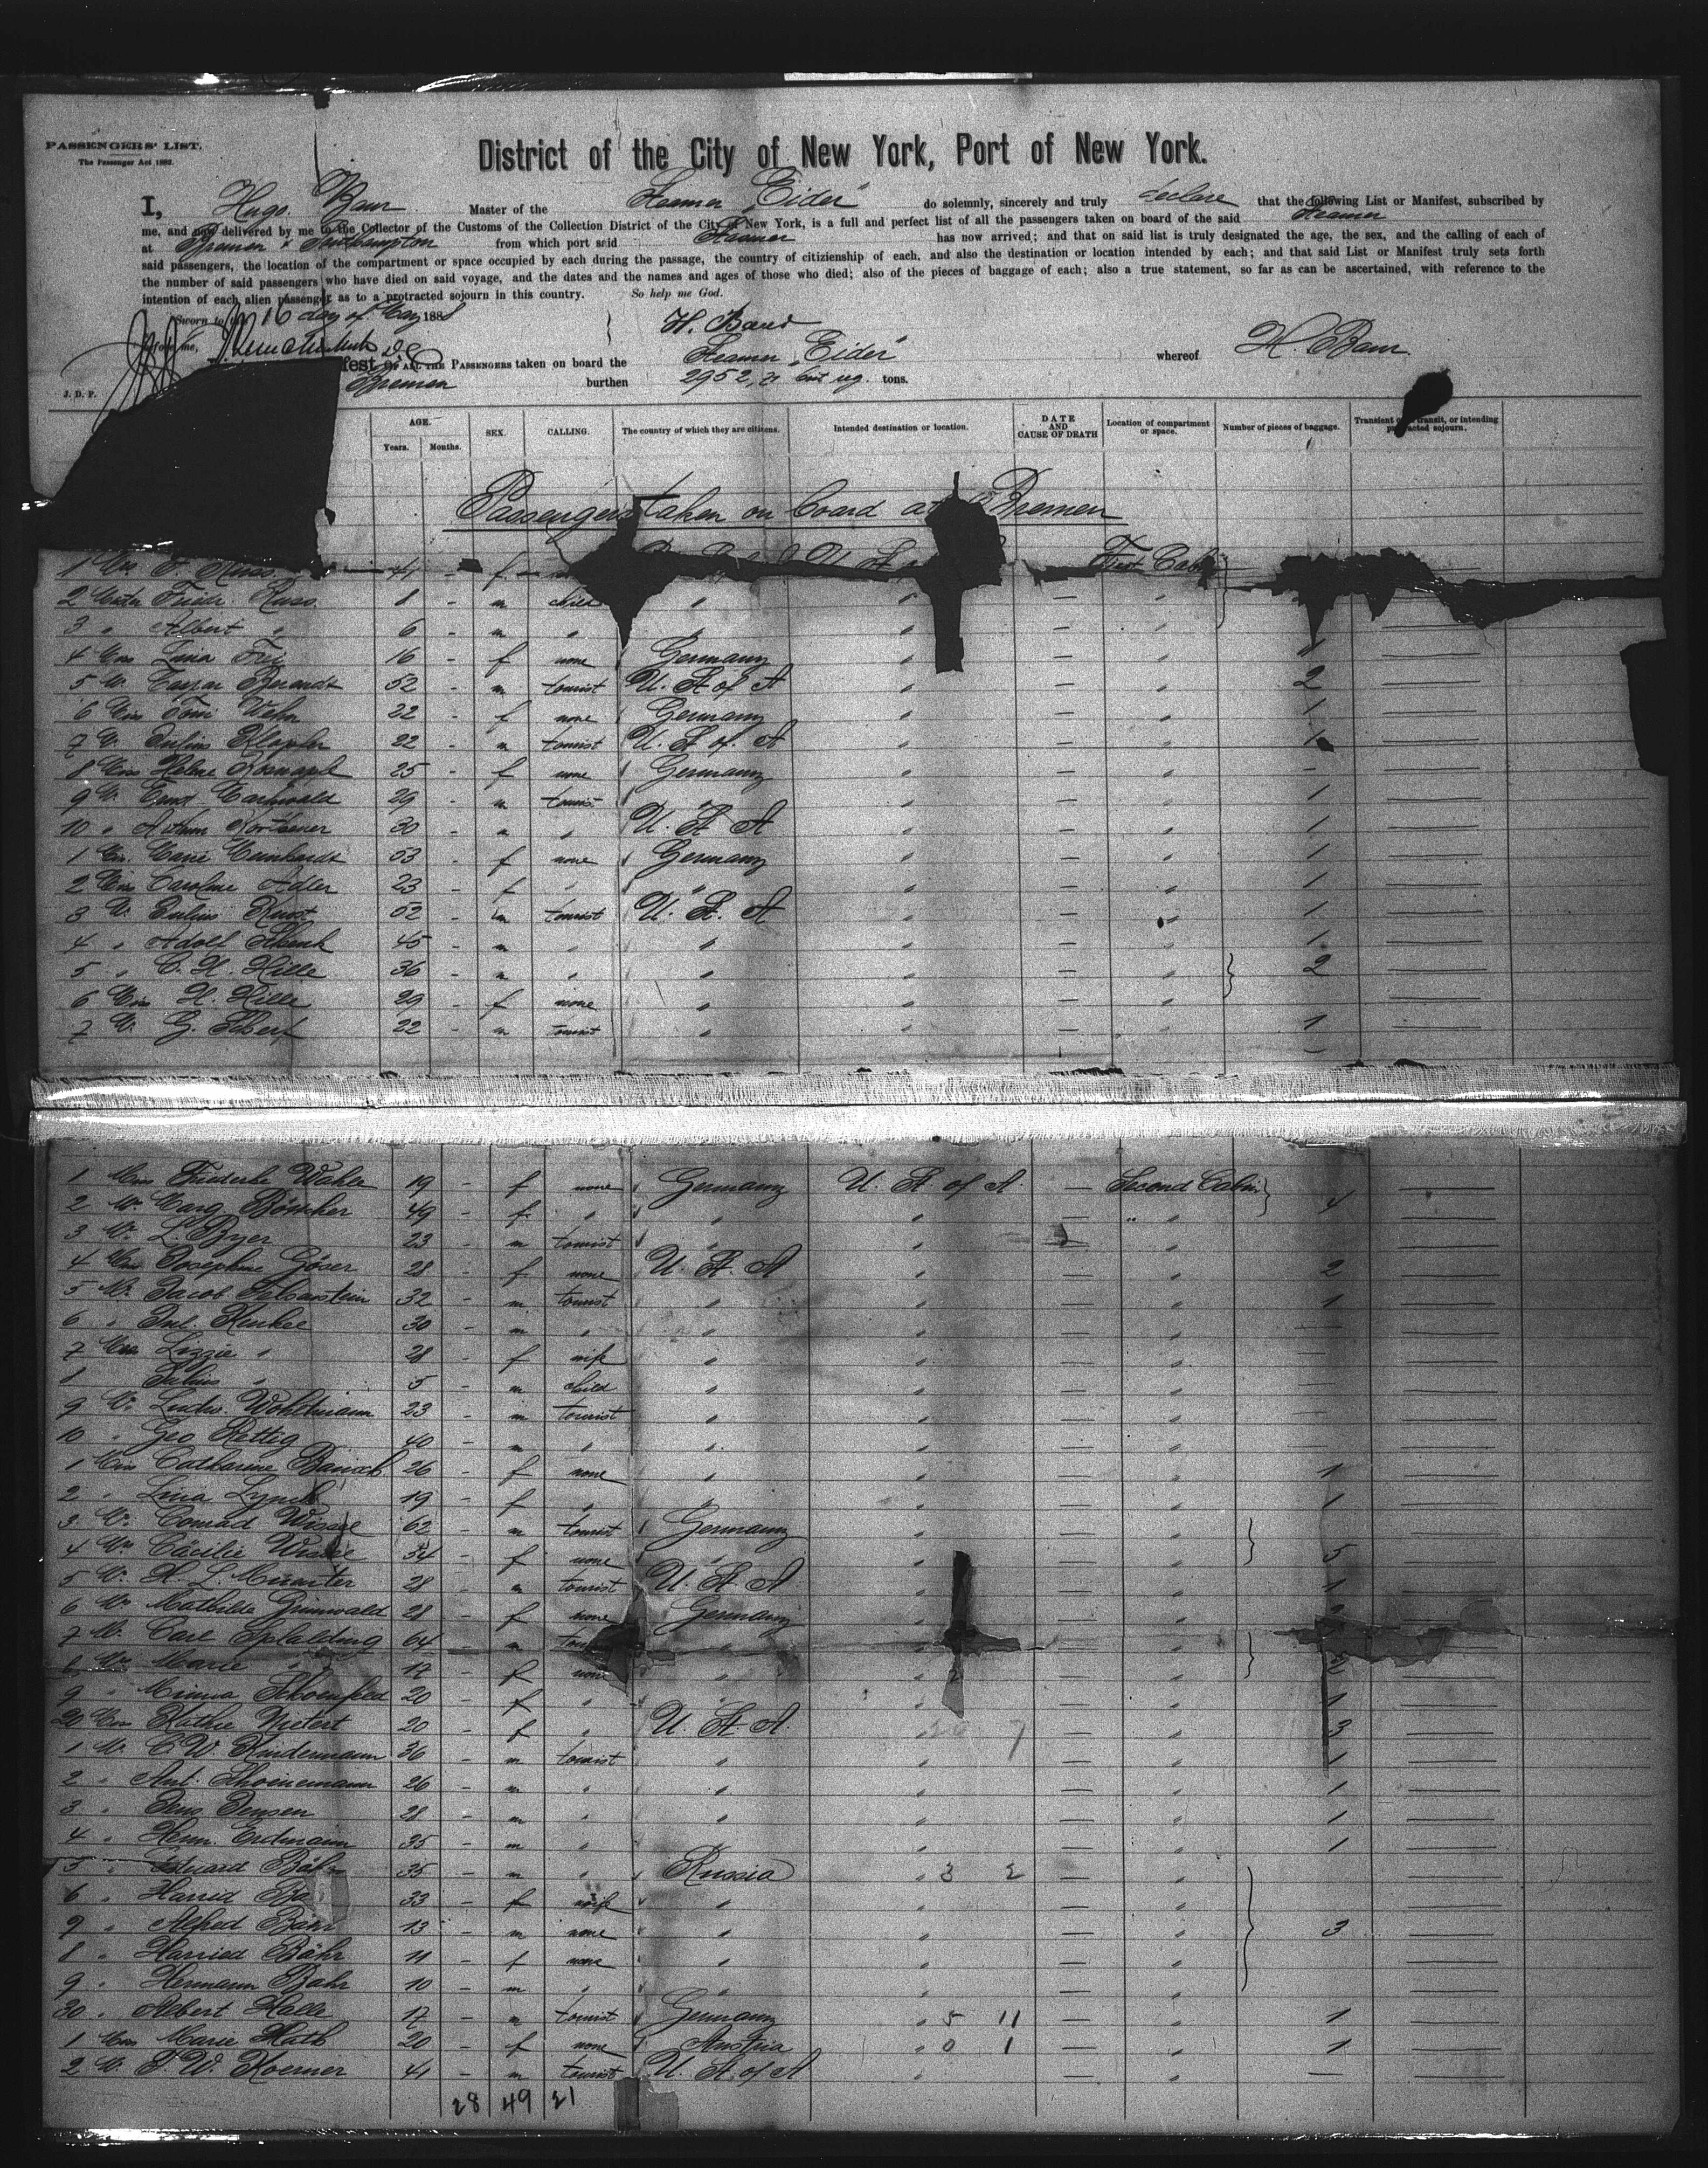 PASSENGERS' LIST.
The Passenger Act 1882.
District of the City of New York, Port of New York.
I, Hugo Baur Master of the Steamer "Eider" do solemnly, sincerely and truly declare that the following List or Manifest, subscribed by
me, and now delivered by me to the Collector of the Customs of the Collection District of the City of New York, is a full and perfect list of all the passengers taken on board of the said Steamer
at Bremen & Southampton from which port said Steamer has now arrived; and that on said list is truly designated the age, the sex, and the calling of each of
said passengers, the location of the compartment or space occupied by each during the passage, the country of citizienship of each, and also the destination or location intended by each; and that said List or Manifest truly sets forth
the number of said passengers who have died on said voyage, and the dates and the names and ages of those who died; also of the pieces of baggage of each; also a true statement, so far as can be ascertained, with reference to the
intention of each alien passenger as to a protracted sojourn in this country. So help me God.
Sworn to this 16 day of May 1888 H. Baur
before me,
fest OF ALL THE PASSENGERS taken on board the Steamer "Eider" whereof H. Baur
J. D. P. Bremen burthen 2952, tons.
AGE. Years. Months. SEX. CALLING. The country of which they are citizens. Intended destination or location. DATE AND CAUSE OF DEATH Location of compartment or space. Number of pieces of baggage. Transient or in transit, or intending protracted sojourn.
Passengers taken on board at Bremen
1 Russ 41 - f First Cab
2 Friedr. Russ 8 - m child "
3 " Albert " 6 - m " " " — "
4 Miss Lina 16 - f none Germany " — " 1
5 Mr. Brandt 52 - m tourist U. St. of A " — " 2
6 Miss Toni Wehn 22 - f none Germany " — " 1
7 Mr. Julius 22 - m tourist U. St. of A " — " 1
8 Miss Helene 25 - f none Germany " — " -
9 Mr. Ernst 29 - m tourist " " — " 1
10 " Arthur 30 - m " U. St. A " — " 1
1 Marie 53 - f none Germany " — " 1
2 Miss Caroline Adler 23 - f " " " — " 1
3 Mr. Julius Rust 52 - m tourist U. St. A " — " 1
4 " Adolf Schenk 45 - m " " " — " 1
5 " C. H. Hille 36 - m " " " — " 2
6 H. Hille 29 - f none " " — "
7 Mr. G. 22 - m tourist " " — " 1
1 Miss Friederike 19 - f none Germany U. St. of A. — Second Cabin
2 Marg. Böttcher 49 - f " " " — " 4
3 Mr. L. Byer 23 - m tourist " " — "
4 Josephine Göser 28 - f none U. St. A " — " 2
5 Mr. Jacob Silberstein 32 - m tourist " " — " 1
6 " Jul. Kenkel 30 - m " " " — " —
7 Lizzie " 28 - f wife " " — " —
8 Julius " 5 - m child " " — " —
9 Mr. Ludw. Wohltmann 23 - m tourist " " — " —
10 " Geo Rettig 40 - m " " " — " —
1 Miss Catharine 26 - f none " " — " 1
2 " Lina Lynch 19 - f " " " — " 1
3 Mr. Conrad 62 - m tourist Germany " — "
4 Cäcilie 54 - f none " " — " 5
5 Mr. H. L. 28 - m tourist U. St. A " — " 1
6 Mathilde Grunwald 28 - f none Germany " — "
7 Mr. Carl Spalding 64 - m " " — "
8 Marie " 17 - f none " " — " 2
9 " Minna 20 - f " " " — " 1
20 Miss Kathie Wietert 20 - f " U. St. A. " — " 3
1 Mr. C. W. Kindermann 36 - m tourist " " — " 1
2 " Ant. Schoinemann 26 - m " " " — " 1
3 " Jens Jensen 28 - m " " " — " 1
4 " Herm. Erdmann 35 - m " " " — " 1
5 " Eduard Bähr 35 - m " Russia " 3 2 — "
6 " Harried Bä 33 - f wife " " — "
7 " Alfred Bähr 13 - m none " " — " 3
8 " Harried Bähr 11 - f none " " — "
9 " Hermann Bähr 10 - m " " " — "
30 " Albert Halle 17 - m tourist Germany " 5 11 — " 1
1 Miss Marie Huth 20 - f none Austria " 0 1 — " 1
2 Mr. F. W. Koerner 41 - m tourist U. St. of A " — " —
28 49 21